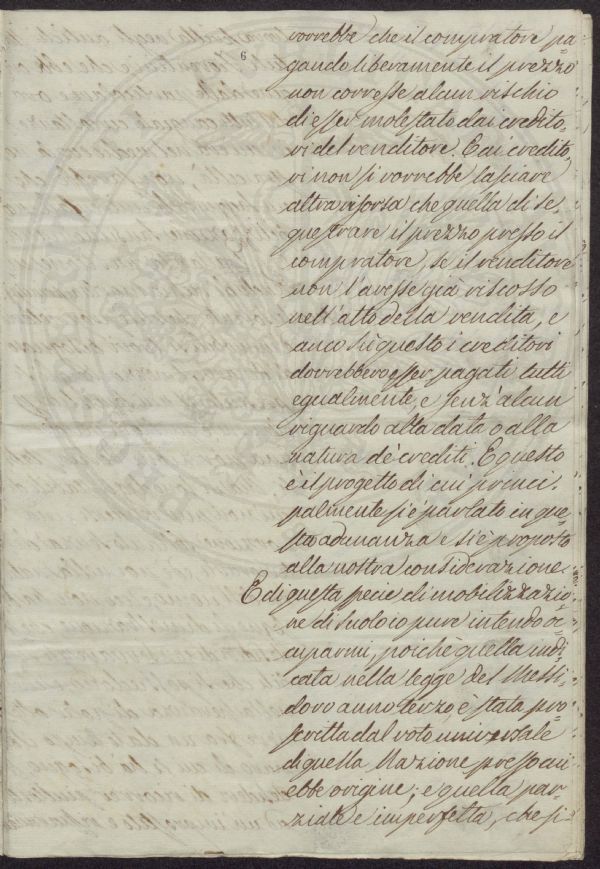 6
vorrebbe che il compratore pa=
gando liberamente il prezzo
non corresse alcun rischio
di esser molestato dai credito=
ri del venditore. E ai credito=
ri non si vorrebbe lasciare
altra risorsa che quella di se=
questrare il prezzo presso il
compratore, se il venditore
non l'avesse già riscosso
nell'atto della vendita, e
anco su questo i creditori
dovrebbero esser pagati tutti
egualmente, e senz'alcun
riguardo alla data o alla
natura de' crediti. E questo
è il progetto di cui princi=
palmente si è parlato in que=
sta adunanza e si è proposto
alla nostra considerazione.
E di questa specie di mobilizzazio=
ne di suolo io pure intendo oc=
cuparmi, poichè quella indi=
cata nella legge del Messi=
doro anno terzo, è stata pro=
scritta dal voto universale
di quella Nazione presso cui
ebbe origine; e quella par=
ziale e imperfetta, che si